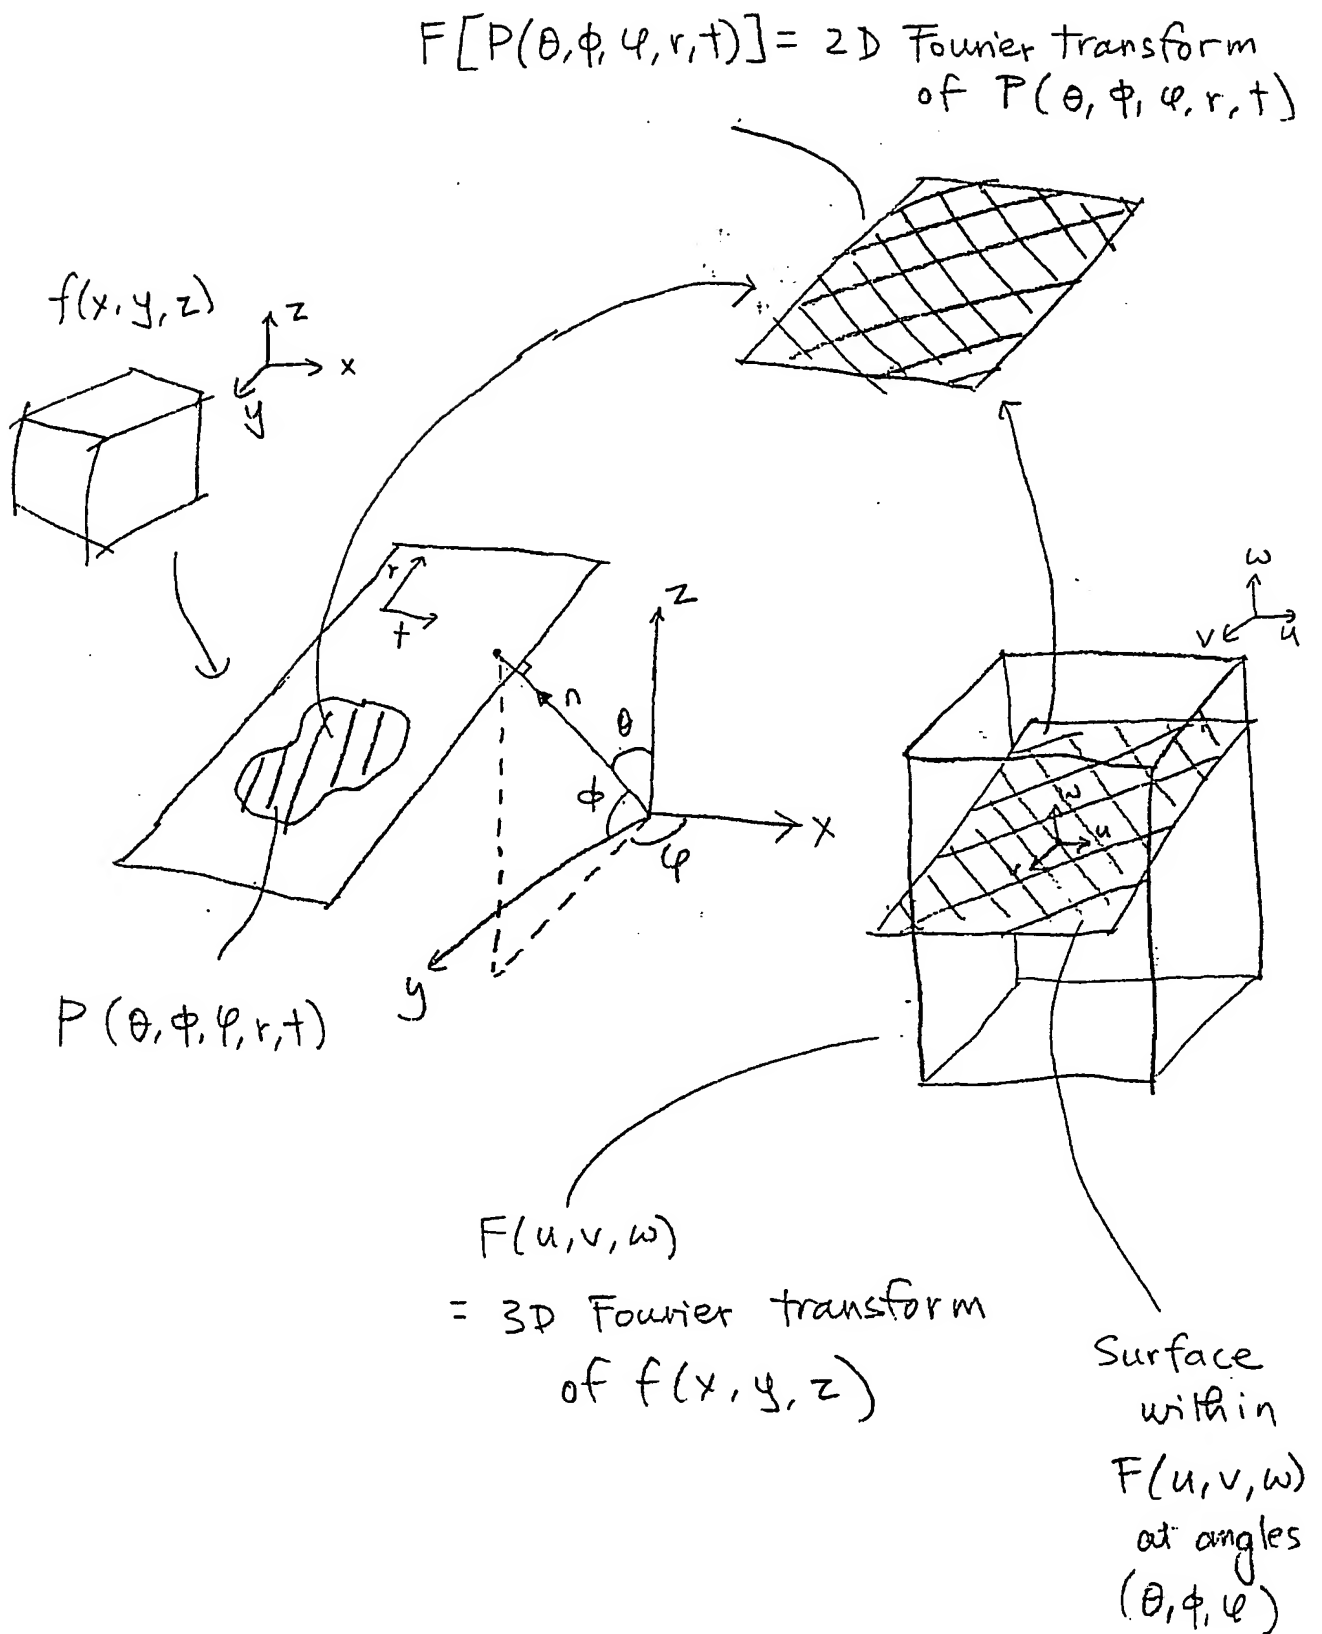 F[P(θ,ϕ,φ,r,t)] = 2D Fourier transform
of P(θ,ϕ,φ,r,t)
f(x,y,z)
z
x
y
r
t
z
n
θ
ϕ
x
φ
y
P(θ,ϕ,φ,r,t)
w
v
u
w
u
v
F(u,v,w)
= 3D Fourier transform
of f(x,y,z)
Surface
within
F(u,v,w)
at angles
(θ,ϕ,φ)